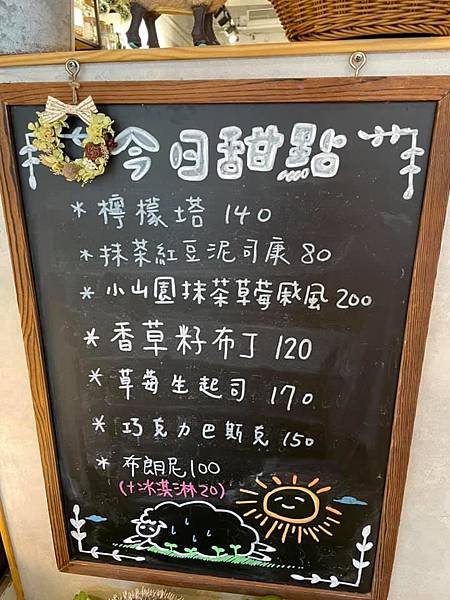 今日甜點
* 檸檬塔 140
* 抹茶紅豆泥司康 80
* 小山園抹茶草莓戚風 200
* 香草籽布丁 120
* 草莓生起司 170
* 巧克力巴斯克 150
* 布朗尼 100
(十冰淇淋20)